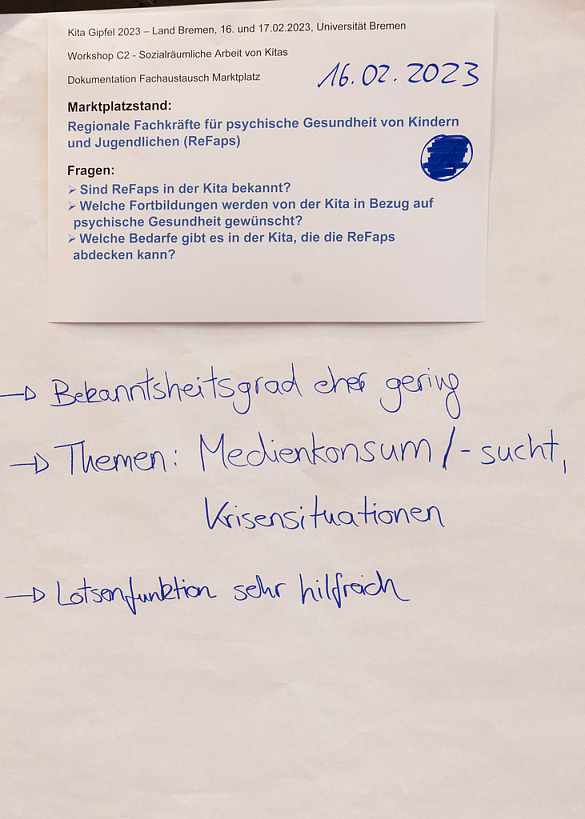 Kita Gipfel 2023 – Land Bremen, 16. und 17.02.2023, Universität Bremen
Workshop C2 - Sozialräumliche Arbeit von Kitas
Dokumentation Fachaustausch Marktplatz
16.02.2023
Marktplatzstand:
Regionale Fachkräfte für psychische Gesundheit von Kindern
und Jugendlichen (ReFaps)
Fragen:
➢ Sind ReFaps in der Kita bekannt?
➢ Welche Fortbildungen werden von der Kita in Bezug auf
psychische Gesundheit gewünscht?
➢ Welche Bedarfe gibt es in der Kita, die die ReFaps
abdecken kann?
→ Bekanntsheitsgrad eher gering
→ Themen: Medienkonsum/-sucht,
Krisensituationen
→ Lotsenfunktion sehr hilfreich